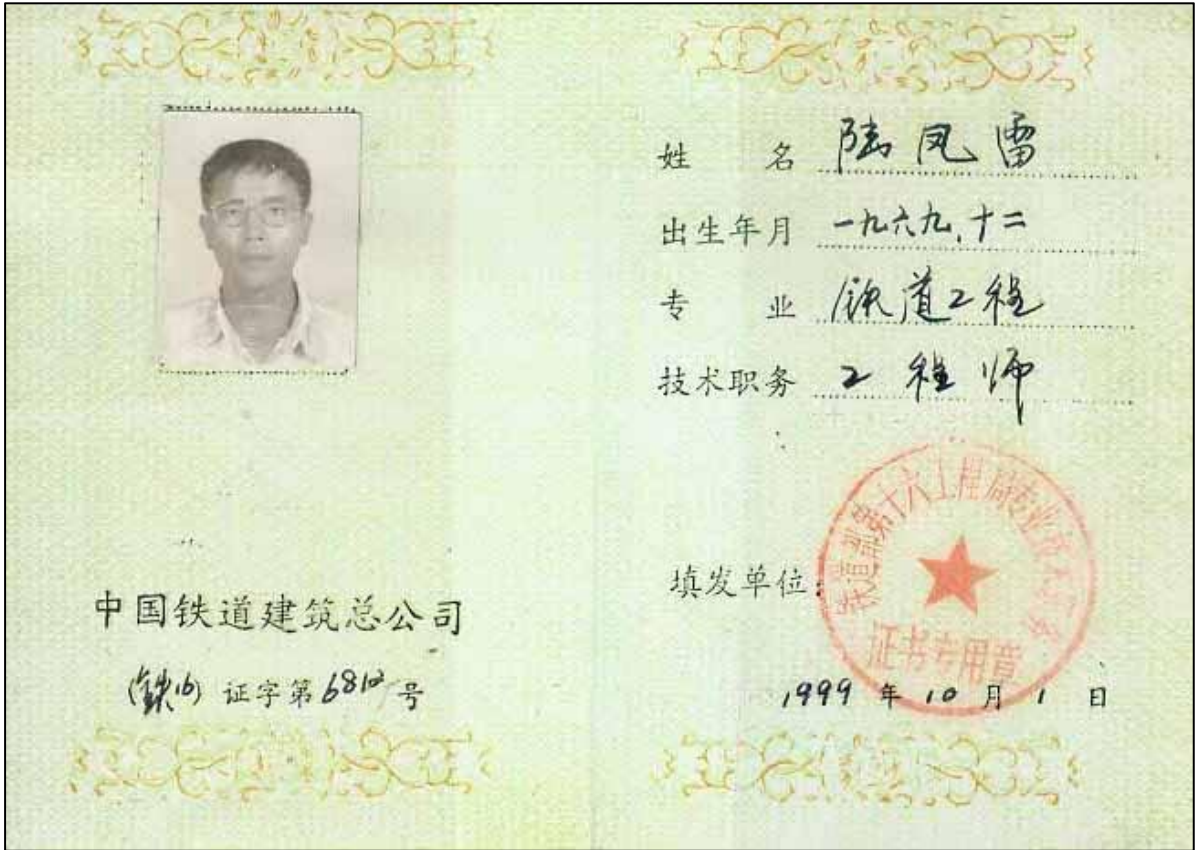 中国铁道建筑总公司
(铁16) 证字第6812号
姓 名 陆凤雷
出生年月 一九六九.十二
专 业 铁道工程
技术职务 工程师
填发单位:
铁道部第十六工程局专业技术职务
证书专用章
1999 年 10 月 1 日